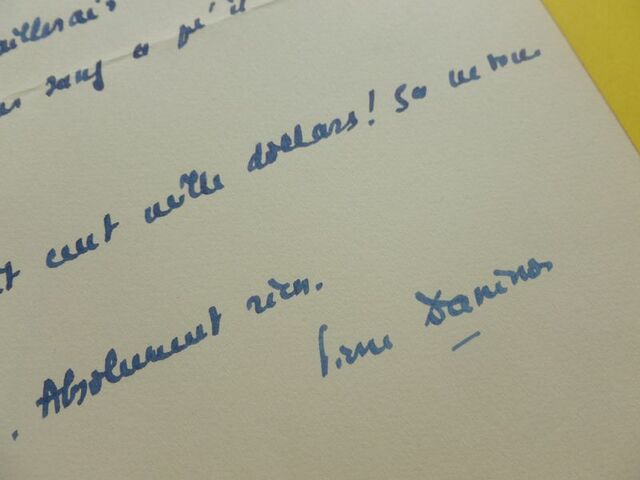 aillerais
sang a qu'il
cent mille dollars! Sa
. Absolument rien.
Pierre Daninos